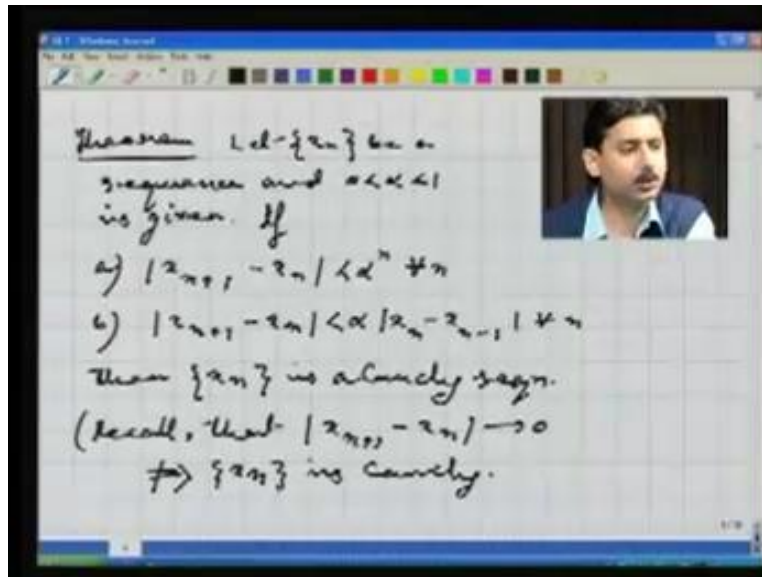 Theorem Let {xn} be a
sequence and 0<α<1
is given. If
a) |x_{n+1} - x_n| < α^n ∀ n
b) |x_{n+1} - x_n| < α |x_n - x_{n-1}| ∀ n
then {xn} is a Cauchy seqn.
(Recall, that |x_{n+1} - x_n| → 0
⇏ {xn} is Cauchy.